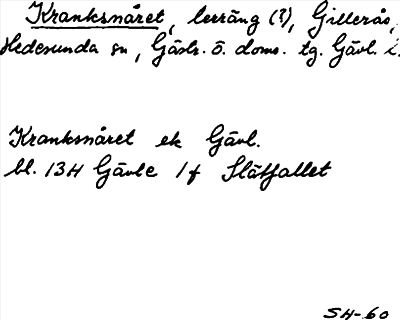 Kranksnåret, lerräng (?), Gillerås,
Hedesunda sn, Gästr. ö. doms. tg. Gävl. l.
Kranksnåret ek Gävl.
bl. 13H Gävle 1f Slåtfallet
SH-60